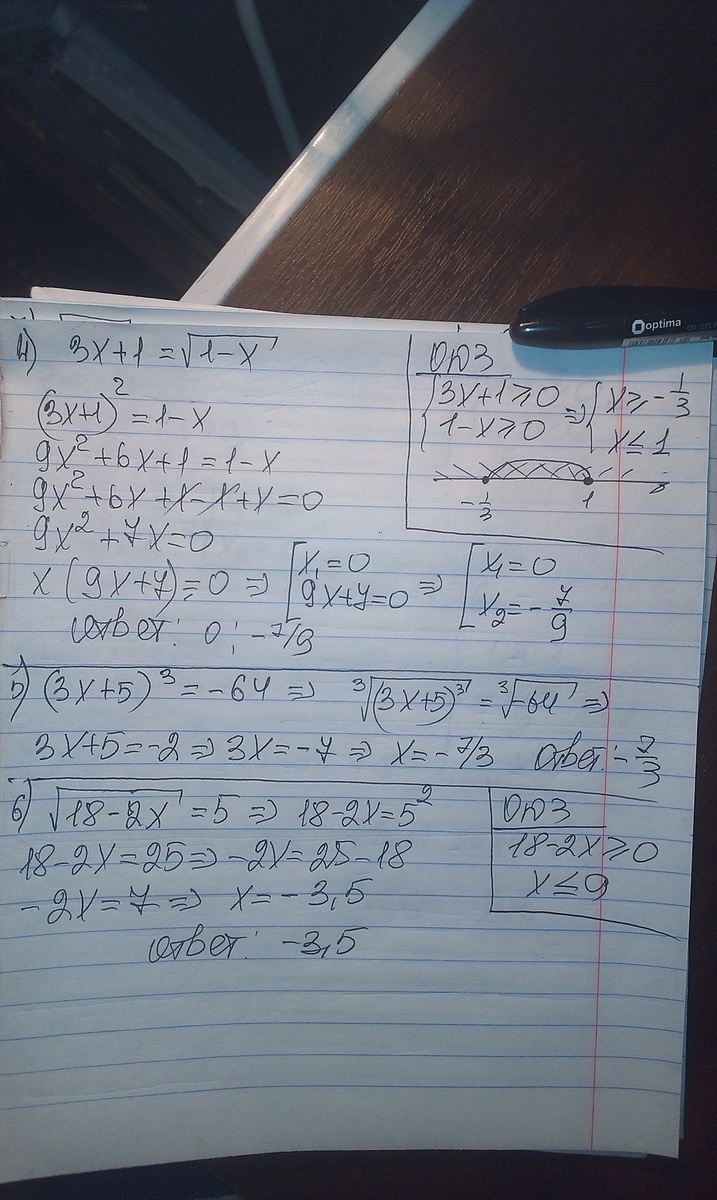 optima
4) 3x+1=√(1-x)
(3x+1)²=1-x
9x²+6x+1=1-x
9x²+6x+1-1+x=0
9x²+7x=0
x(9x+7)=0 => [x₁=0 9x+7=0 => [x₁=0 x₂=-7/9
Ответ: 0; -7/9
ОДЗ
{3x+1≥0 1-x≥0 => {x≥-1/3 x≤1
-1/3 1
5) (3x+5)³=-64 => ³√(3x+5)³=³√-64 =>
3x+5=-2 => 3x=-7 => x=-7/3 Ответ: -7/3
6) √(18-2x)=5 => 18-2x=5²
18-2x=25 => -2x=25-18
-2x=7 => x=-3,5
Ответ: -3,5
ОДЗ
18-2x≥0
x≤9